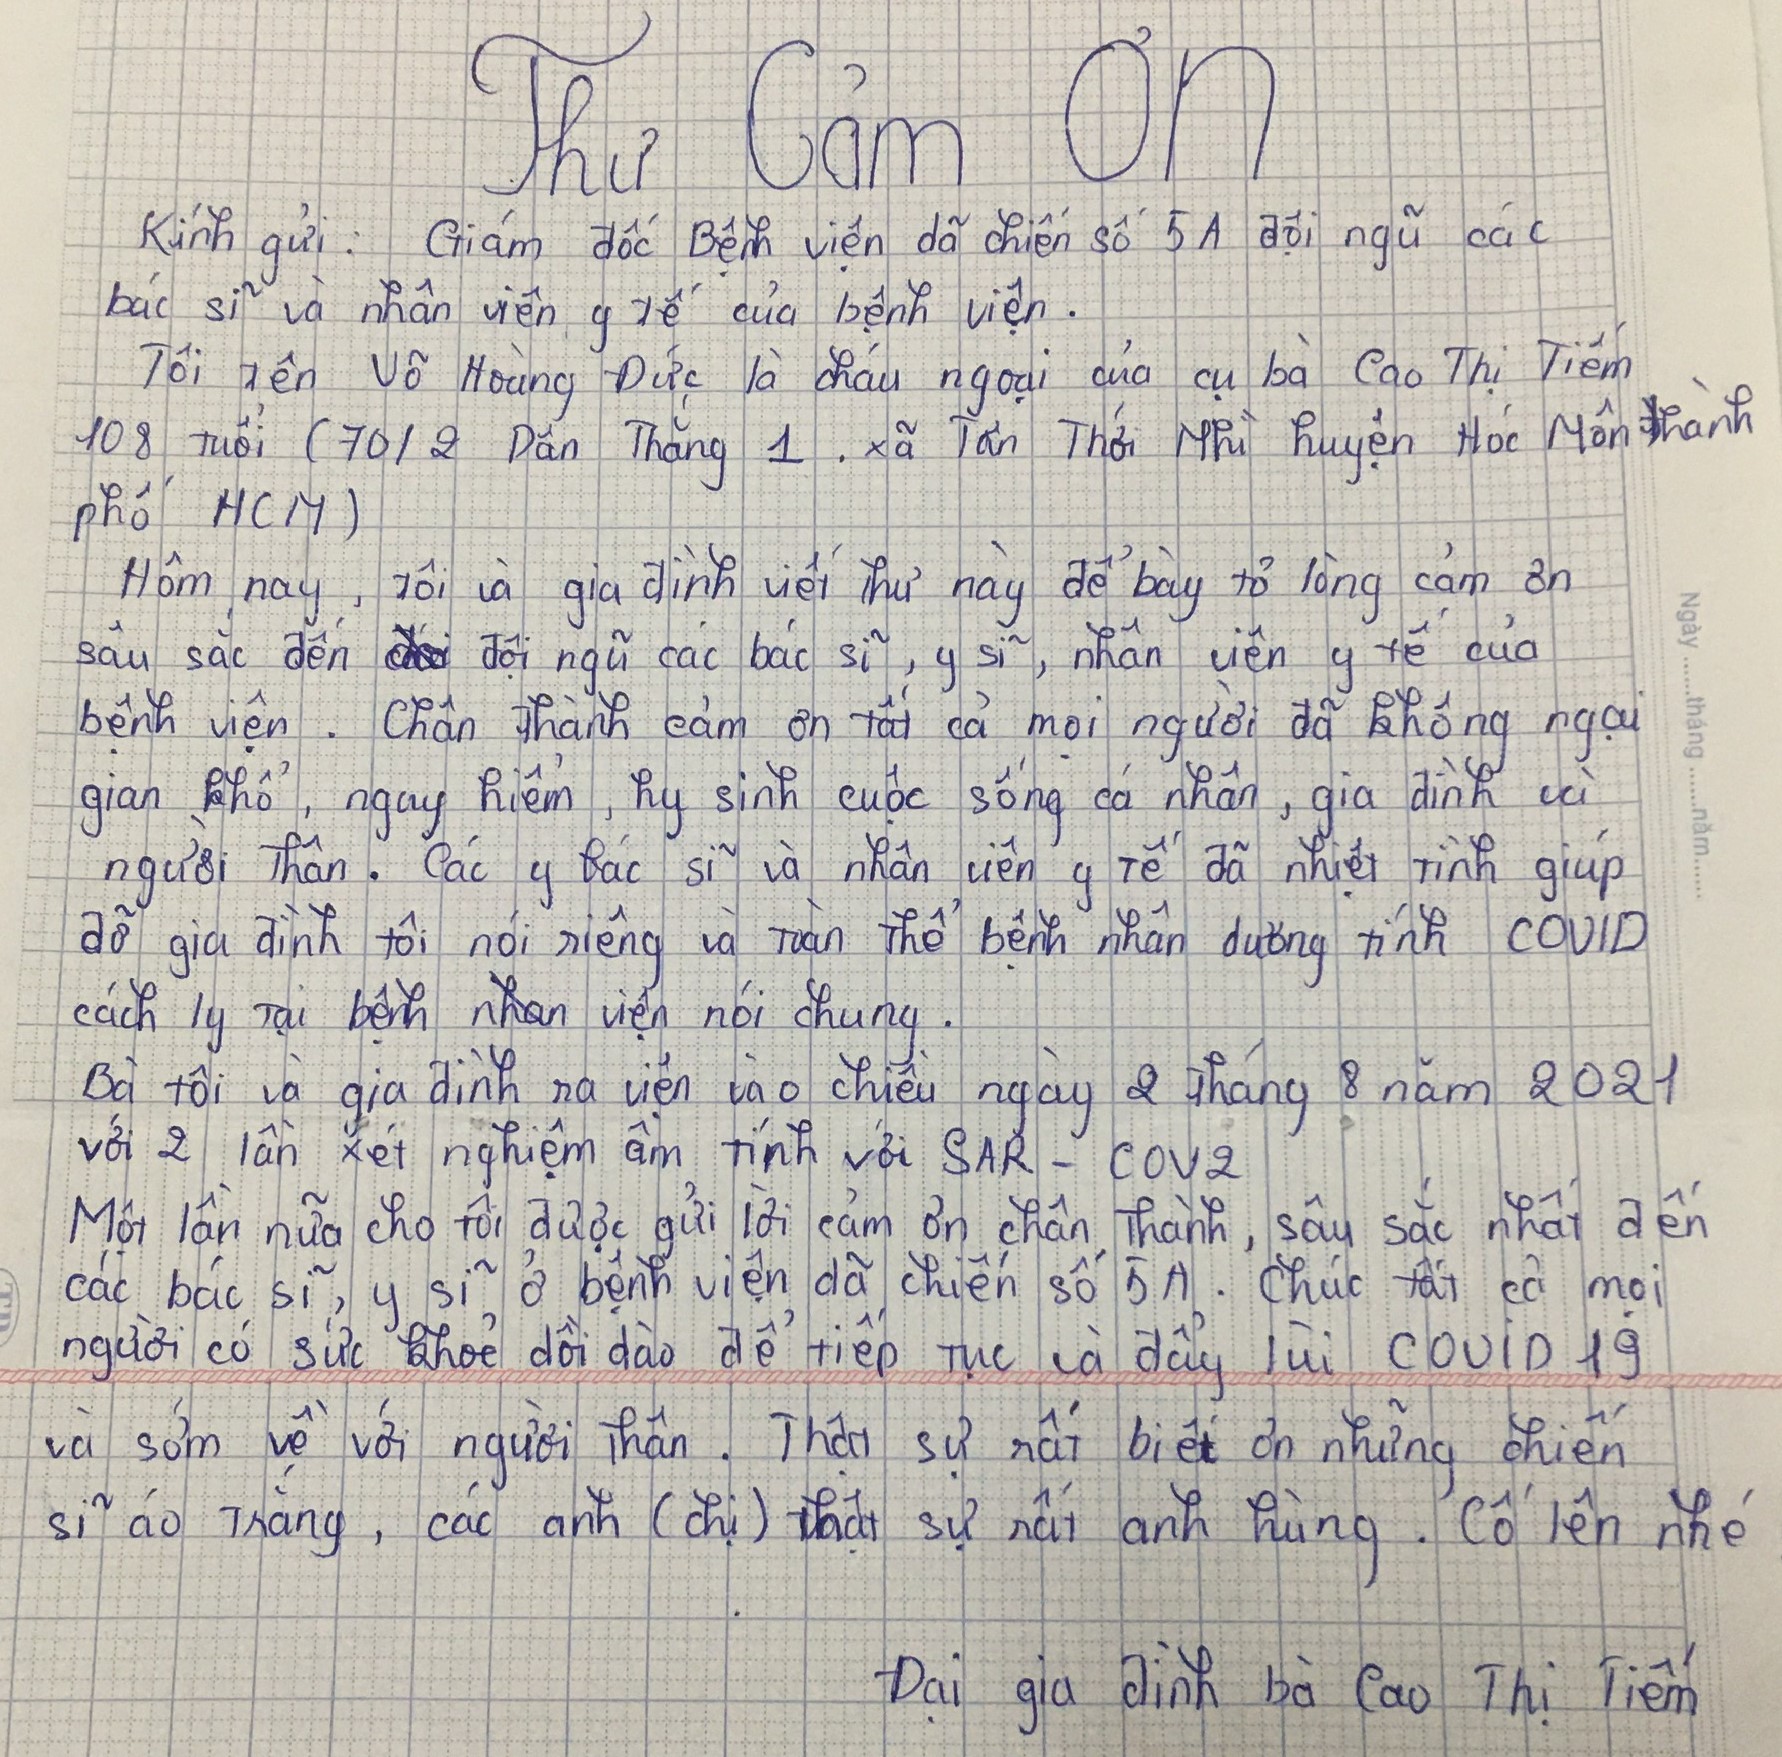 Thư Cảm Ơn
Kính gửi: Giám đốc Bệnh viện dã chiến số 5A đội ngũ các
bác sĩ và nhân viên y tế của bệnh viện.
Tôi tên Võ Hoàng Đức là cháu ngoại của cụ bà Cao Thị Tiếm
108 tuổi (70/2 Dân Thắng 1. xã Tân Thới Nhì huyện Hóc Môn thành
phố HCM)
Hôm nay, tôi và gia đình viết thư này để bày tỏ lòng cảm ơn
sâu sắc đến đội ngũ các bác sĩ, y sĩ, nhân viên y tế của
bệnh viện. Chân thành cảm ơn tất cả mọi người đã không ngại
gian khổ, nguy hiểm, hy sinh cuộc sống cá nhân, gia đình vì
người thân. Các y bác sĩ và nhân viên y tế đã nhiệt tình giúp
đỡ gia đình tôi nói riêng và toàn thể bệnh nhân dương tính COVID
cách ly tại bệnh nhan viện nói chung.
Bà tôi và gia đình ra viện vào chiều ngày 2 tháng 8 năm 2021
với 2 lần xét nghiệm âm tính với SAR - COV2
Một lần nữa cho tôi được gửi lời cảm ơn chân thành, sâu sắc nhất đến
các bác sĩ, y sĩ ở bệnh viện dã chiến số 5A. Chúc tất cả mọi
người có sức khoẻ dồi dào để tiếp tục và đẩy lùi COVID 19
và sớm về với người thân. Thật sự rất biết ơn những chiến
sĩ áo trắng, các anh (chị) thật sự rất anh hùng. Cố lên nhé
Đại gia đình bà Cao Thị Tiếm
Ngày ......tháng ......năm......